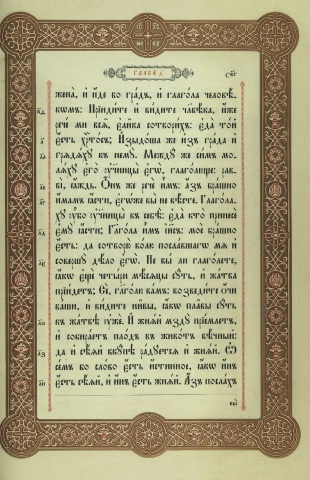 ГЛАВА д҃.
жена̀, и҆ и҆́де во гра́дъ, и҆ глаго́ла человѣ́-
кѡмъ: Прїиди́те и҆ ви́дите чл҃вѣ́ка, и҆́же
рече́ ми всѧ̑, є҆ли̑ка сотвори́хъ: є҆да̀ то́й
є҆́сть хрⷭ҇то́съ; И҆зыдо́ша же и҆з̾ гра́да и҆
грѧдѧ́хꙋ къ немꙋ̀. Междꙋ́ же си́мъ мо-
лѧ́хꙋ є҆го̀ ᲂу҆ченицы̀ є҆гѡ̀, глаго́люще: рав-
вї̀, ꙗ҆́ждь. Ѻ҆́нъ же речѐ и҆̀мъ: а҆́зъ бра́шно
и҆́мамъ ꙗ҆́сти, є҆гѡ́же вы̀ не вѣ́сте. Глаго́ла-
хꙋ ᲂу҆̀бо ᲂу҆ченицы̀ къ себѣ̀: є҆да̀ кто̀ принесѐ
є҆мꙋ̀ ꙗ҆́сти; Глаго́ла и҆̀мъ і҆и҃съ: моѐ бра́шно
є҆́сть: да сотворю̀ во́лю посла́вшагѡ мѧ̀ и҆
совершꙋ̀ дѣ́ло є҆гѡ̀. Не вы́ ли глаго́лете,
ꙗ҆́кѡ є҆щѐ четы́ри мцⷭ҇ы сꙋ́ть, и҆ жа́тва
прїи́детъ; Сѐ, глаго́лю ва́мъ: возведи́те ѻ҆́чи
ва́ши, и҆ ви́дите ни̑вы, ꙗ҆́кѡ пла̑вы сꙋ́ть
къ жа́твѣ ᲂу҆жѐ. И҆ жнѧ́й мздꙋ̀ прїе́млетъ,
и҆ собира́етъ пло́дъ въ живо́тъ вѣ́чный:
да и҆ сѣ́ѧй вкꙋ́пѣ ра́дꙋетсѧ и҆ жнѧ́й. Ѡ҆
се́мъ бо сло́во є҆́сть и҆́стинное, ꙗ҆́кѡ и҆́нъ
є҆́сть сѣ́ѧй, и҆ и҆́нъ є҆́сть жнѧ́й. А҆́зъ посла́хъ
вы̀